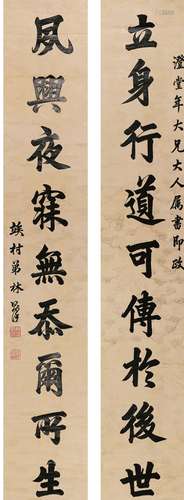 澄堂年大兄大人属書即政
立身行道可傳於後世
夙興夜寐無忝爾所生
竢村弟林則徐